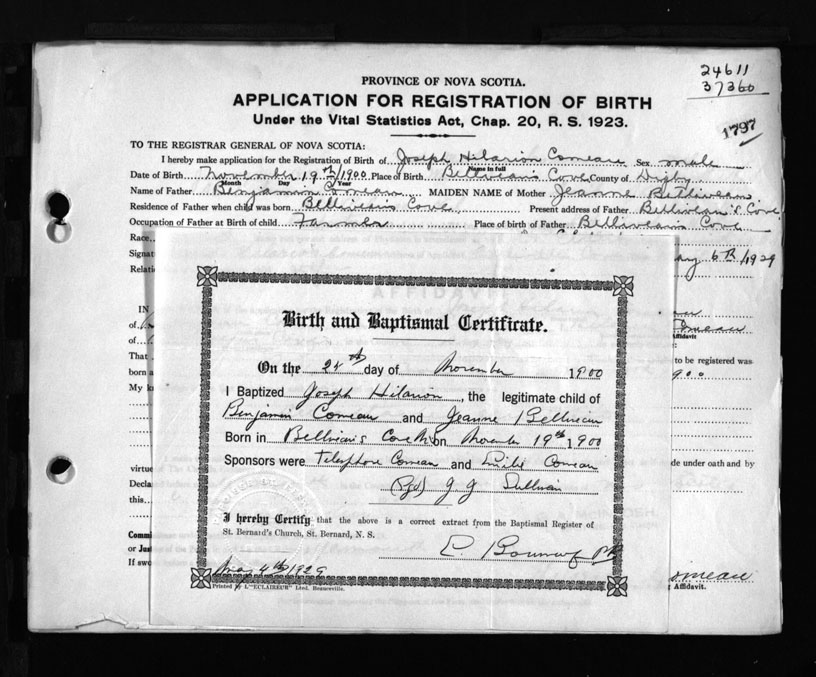 24611
37360
PROVINCE OF NOVA SCOTIA.
APPLICATION FOR REGISTRATION OF BIRTH
Under the Vital Statistics Act, Chap. 20, R. S. 1923.
1797
TO THE REGISTRAR GENERAL OF NOVA SCOTIA:
I hereby make application for the Registration of Birth of Joseph Hilarion Comeau Sex male
Name in full
Date of Birth November 19th/1900 Place of Birth Belliveau's Cove County of Digby
Month Day Year
Name of Father Benjamin Comeau MAIDEN NAME of Mother Jeanne Belliveau
Residence of Father when child was born Belliveau's Cove Present address of Father Belliveau's Cove
Occupation of Father at Birth of child Farmer Place of birth of Father Belliveau's Cove
Race
Signat
May 6th/1929
Relati
AFFIDAVIT
IN
of
Comeau
Affidavit
of
That
to be registered was
born a
900
My k
Birth and Baptismal Certificate.
On the 24th day of November 1900
I Baptized Joseph Hilarion, the legitimate child of
Benjamin Comeau and Jeanne Belliveau
Born in Belliveau's Cove on November 19th 1900
Sponsors were Telesphore Comeau and Emilie Comeau
(Sgd) J. J. Sullivan
I hereby Certify that the above is a correct extract from the Baptismal Register of
St. Bernard's Church, St. Bernard, N. S.
May 4th/1929
Printed by L'"ECLAIREUR" Ltée. Beauceville.
de under oath and by
virtue
Decla
this
Commi
or Jus
If swo
omeau
Affidavit.